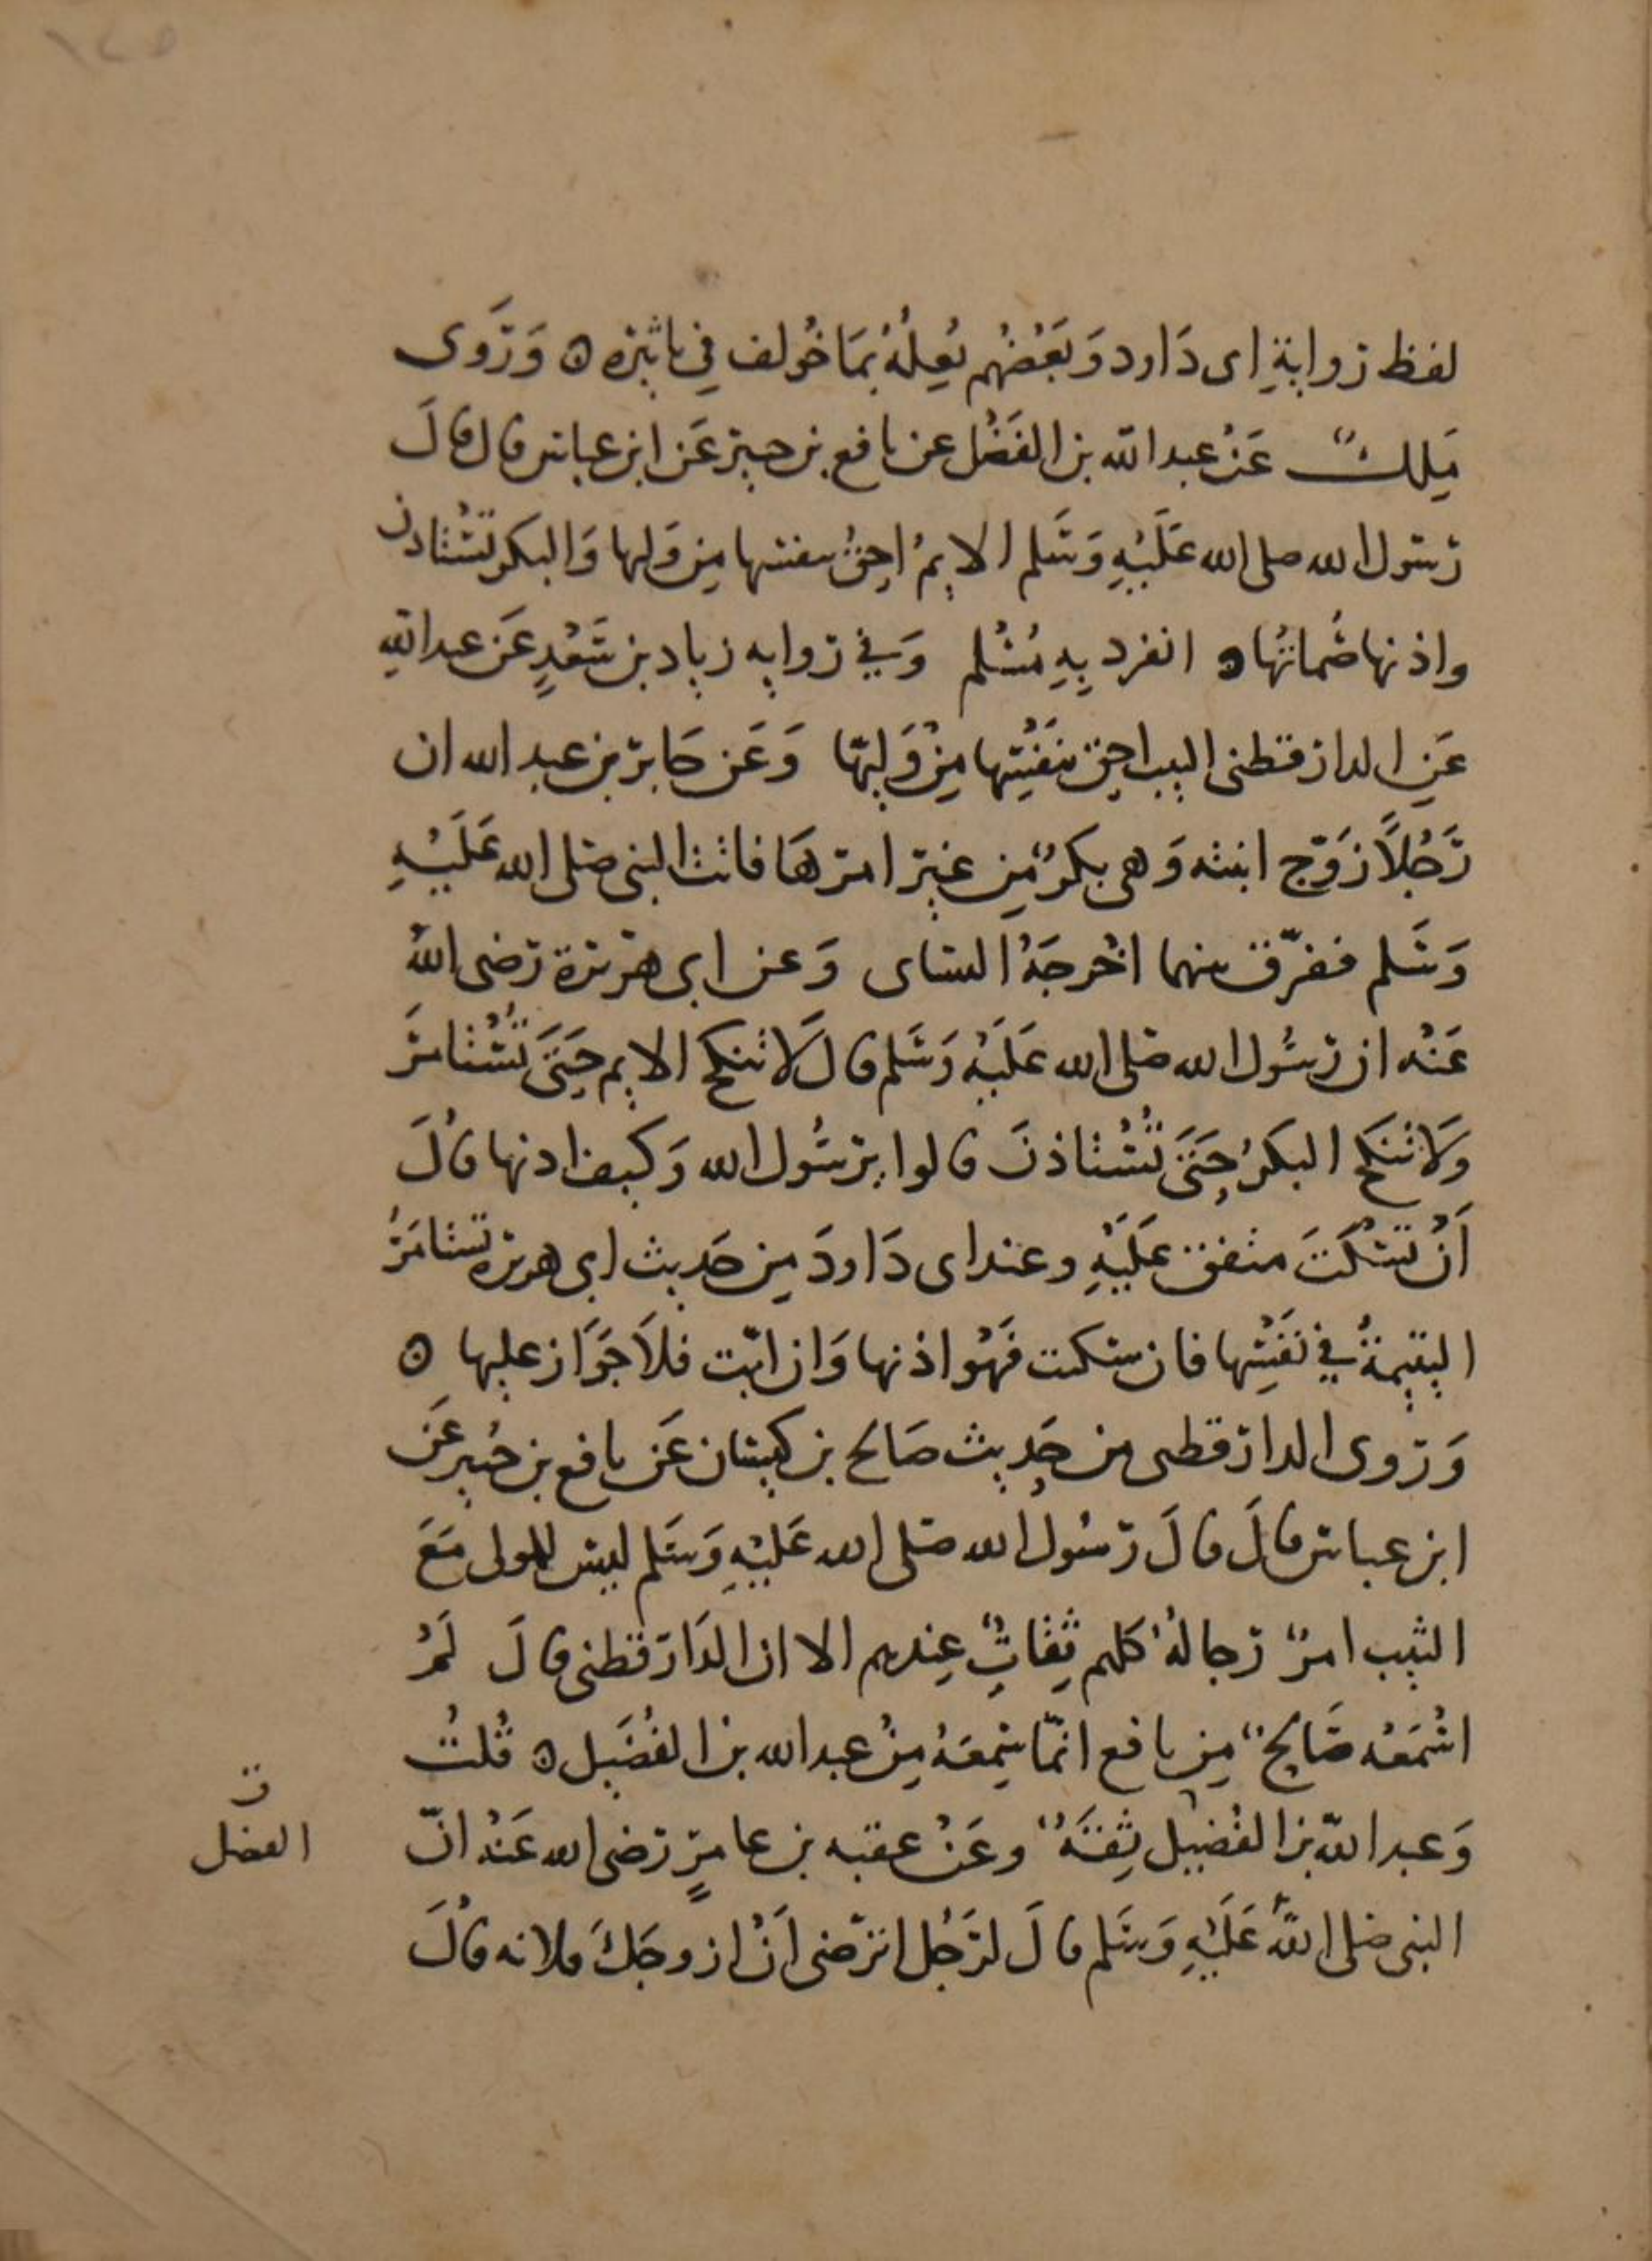 ١٤٥
لفظ روايةِ ابى دَاود وَبَعْضُهم يُعِلُهُ بمَا خُولف فِي تاثيره ۞ وَرَوَى
مَٰلِكٌ عَنْ عبد الله بن الفَضْل عن نافع بن جبير عَن ابن عباس قال قالَ
رسول الله صلى الله عَلَيْهِ وَسَلم الايمُ احقُ بنفسها مِن وَليها وَالبكر تُسْتاذن
واذنها صُماتُها ۞ انفرد بِهِ مُسْلم وَفي روايه زياد بن سَعْدٍ عَن عبد اللهِ
عَنِ الدارقطنى الثيب احق بنَفْسِها مِنْ وَليّها وَعَن جَابر بن عبد الله ان
رَجُلاً زَوّج ابنته وَهى بكرٌ مِن غير امرهَا فاتت النبى صلى الله عَلَيْهِ
وَسَلم ففرّق بينهما اخْرجَهُ النساى وَعن ابى هريرة رَضى اللهُ
عَنْه ان رسُول الله صلى الله عَلَيْه وَسَلم قال لَا تنكح الايم حَتىَ تُسْتامَر
وَلا تنكَح البكرُ حَتىَ تُسْتاذنَ قالوا يرسُول الله وَكيف ادنها قالَ
اَنْ تسْكَتَ متفق عَلَيْهِ وعند ابى دَاودَ مِن حَديث ابى هريره تستامَرُ
اليتيمةُ في نَفْسِها فان سكت فَهْو اذنها وَان ابَت فلاَ جَوَاز عليها ۞
وَرَوى الدارقطى من حَديث صَالح بن كيسان عَن نافع بن جُبير عَن
ابن عباس قالَ قالَ رسُول الله صَلى الله عَليْهِ وَسَلم ليس للولى مَعَ
الثيب امرٌ رجالهُ كلهم ثِقَاتٌ عِندهم الا ان الدَارَقطنى قالَ لَمْ
اسْمَعْه صَالِحٌ مِن نافع انمّا سَمِعَهُ مِنْ عبد الله بن الفُضَيل ۞ قُلتُ
وَعبد اللّه بن الفُضَيل ثِقَةٌ وعَنْ عقبه بن عامرٍ رَضى الله عَنْهُ انّ
النبى صلى اللَّهُ عَلَيْهِ وَسَلم قالَ لرَجُل اترْضى اَنْ ازوجَكَ فلانه قالَ
ن
الفضل